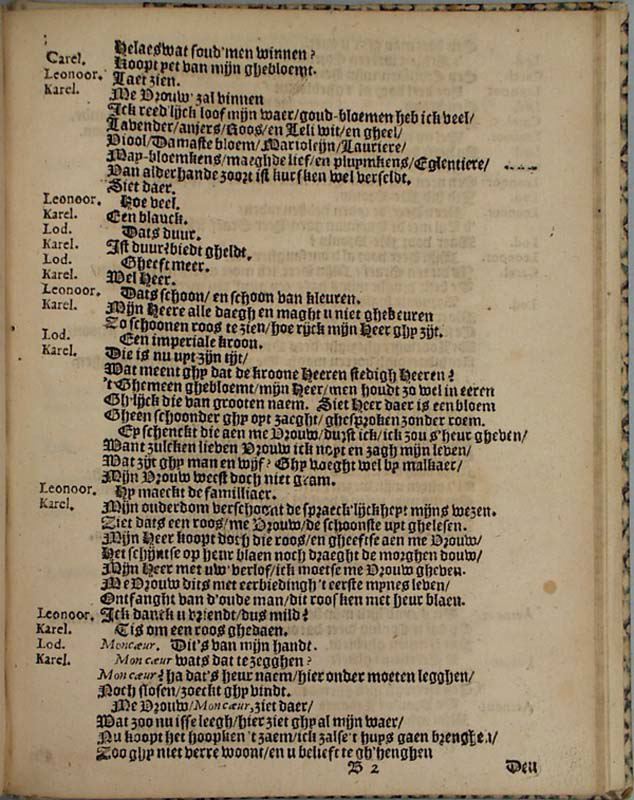 Helaes wat soud' men winnen?
Carel. Koopt yet van mijn ghebloemt.
Leonoor. Laet zien.
Karel. Me Vrouw' zal vinnen
Ick reed'lijck loof mijn waer/goud-bloemen heb ick veel/
Lavender/anjers/Roos/en Leli wit/en gheel/
Viool/Damaste bloem/Mariolein/Lauriere/
May-bloemkens/maeghde lief/en pluymkens/Eglentiere/
Van alderhande zoort ist kurfken wel verseldt.
Siet daer.
Leonoor. Hoe veel.
Karel. Een blanck.
Lod. Dats duur.
Karel. Ist duur? biedt gheldt.
Lod. Gheeft meer.
Karel. Wel Heer.
Leonoor. Dats schoon/en schoon van kleuren.
Karel. Mijn Heere alle daegh en maght u niet ghebeuren
Zo schoonen roos te zien/hoe rijck mijn Heer ghy zijt.
Lod. Een imperiale kroon.
Karel. Die is nu uyt zijn tijt/
Wat meent ghy dat de kroone Heeren stedigh Heeren?
't Ghemeen ghebloemt/mijn Heer/men houdt zo wel in eeren
Gh'lijck die van grooten naem. Siet Heer daer is een bloem
Gheen schoonder ghy opt zaeght/ghesproken zonder roem.
Ey schenckt die aen me Vrouw/durst ick/ick zou s'heur gheven/
Want zulcken lieven Vrouw ick noyt en zagh mijn leven/
Wat zijt ghy man en wijf? Ghy voeght wel by malkaer/
Mijn Vrouw weest doch niet gram.
Leonoor. Hy maeckt de familliaer.
Karel. Mijn ouderdom verschoont de spraeck'lijckheyt mijns wezen.
Ziet dats een roos/me Vrouw/de schoonste uyt ghelesen.
Mijn Heer koopt doch die roos/en gheeftse aen me Vrouw/
Het schijntse op heur blaen noch draeght de morghen douw/
Mijn Heer met uw' verlof/ick moetse me Vrouw gheven.
Me Vrouw dits met eerbiedingh 't eerste mynes leven/
Ontfanght van d'oude man/dit roosken met heur blaen.
Leonoor. Ick danck u vriendt/dus mild?
Karel. Tis om een roos ghedaen.
Lod. Moncœur. Dit's van mijn handt.
Karel. Mon cœur wats dat te zegghen?
Mon cœur? ha dat's heur naem/hier onder moeten legghen/
Noch flosen/zoeckt ghy vindt.
Me Vrouw/Mon cœur, ziet daer/
Wat zoo nu isse leegh/hier ziet ghy al mijn waer/
Nu koopt het hoopken 't zaem/ick zalse t'huys gaen brenghen/
Zoo ghy niet verre woont/en u belieft te gh'henghen
B 2 Den